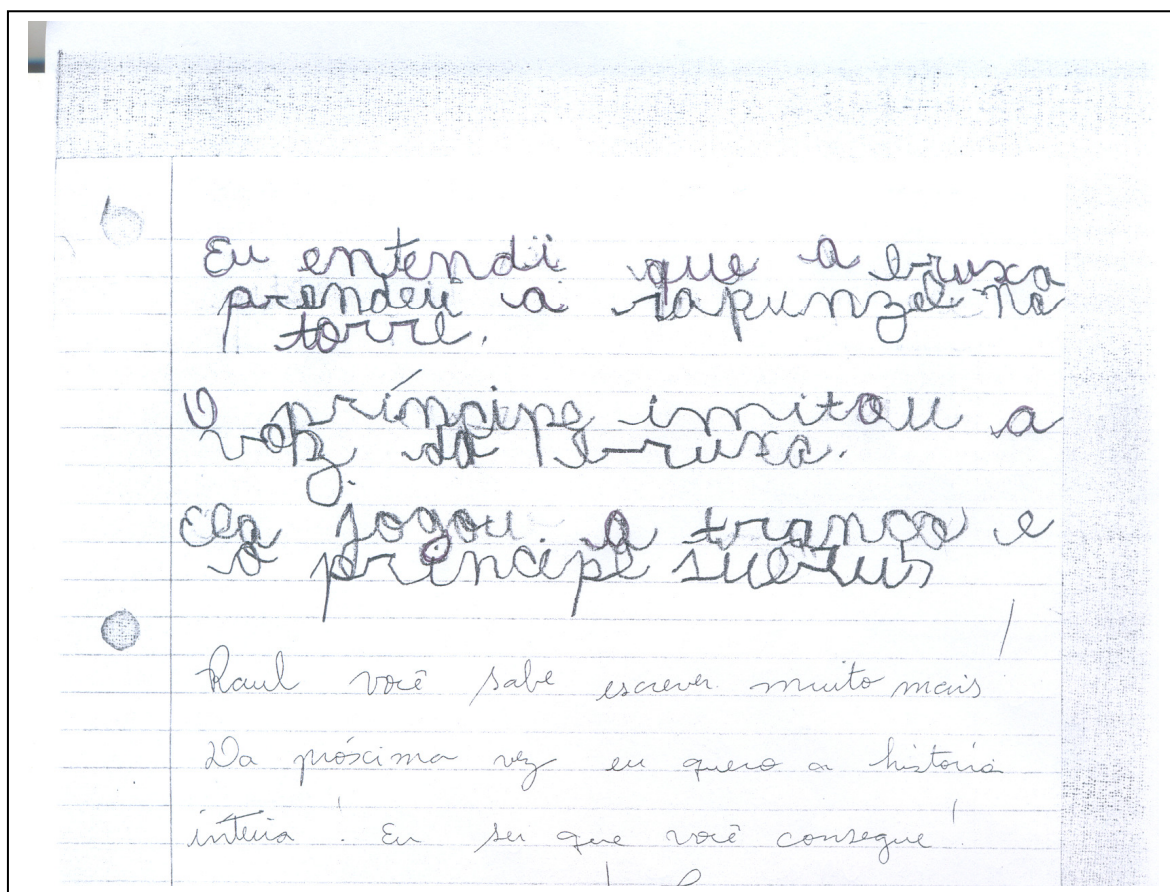 Eu entendi que a bruxa
prendeu a rapunzel na
torre.
O príncipe imitou a
voz da bruxa.
Ela jogou a trança e
o príncipe
Raul você sabe escrever muito mais
Da próxima vez eu quero a história
inteira! Eu sei que você consegue!